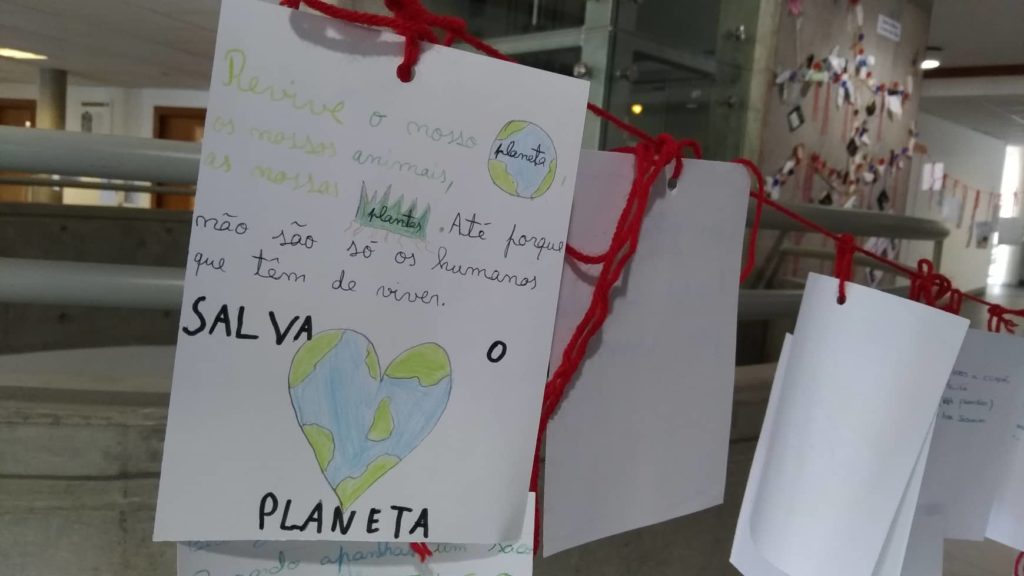 Revive o nosso planeta,
os nossos animais,
as nossas plantas. Até porque
não são só os humanos
que têm de viver.
SALVA O
PLANETA
apanhar um saco